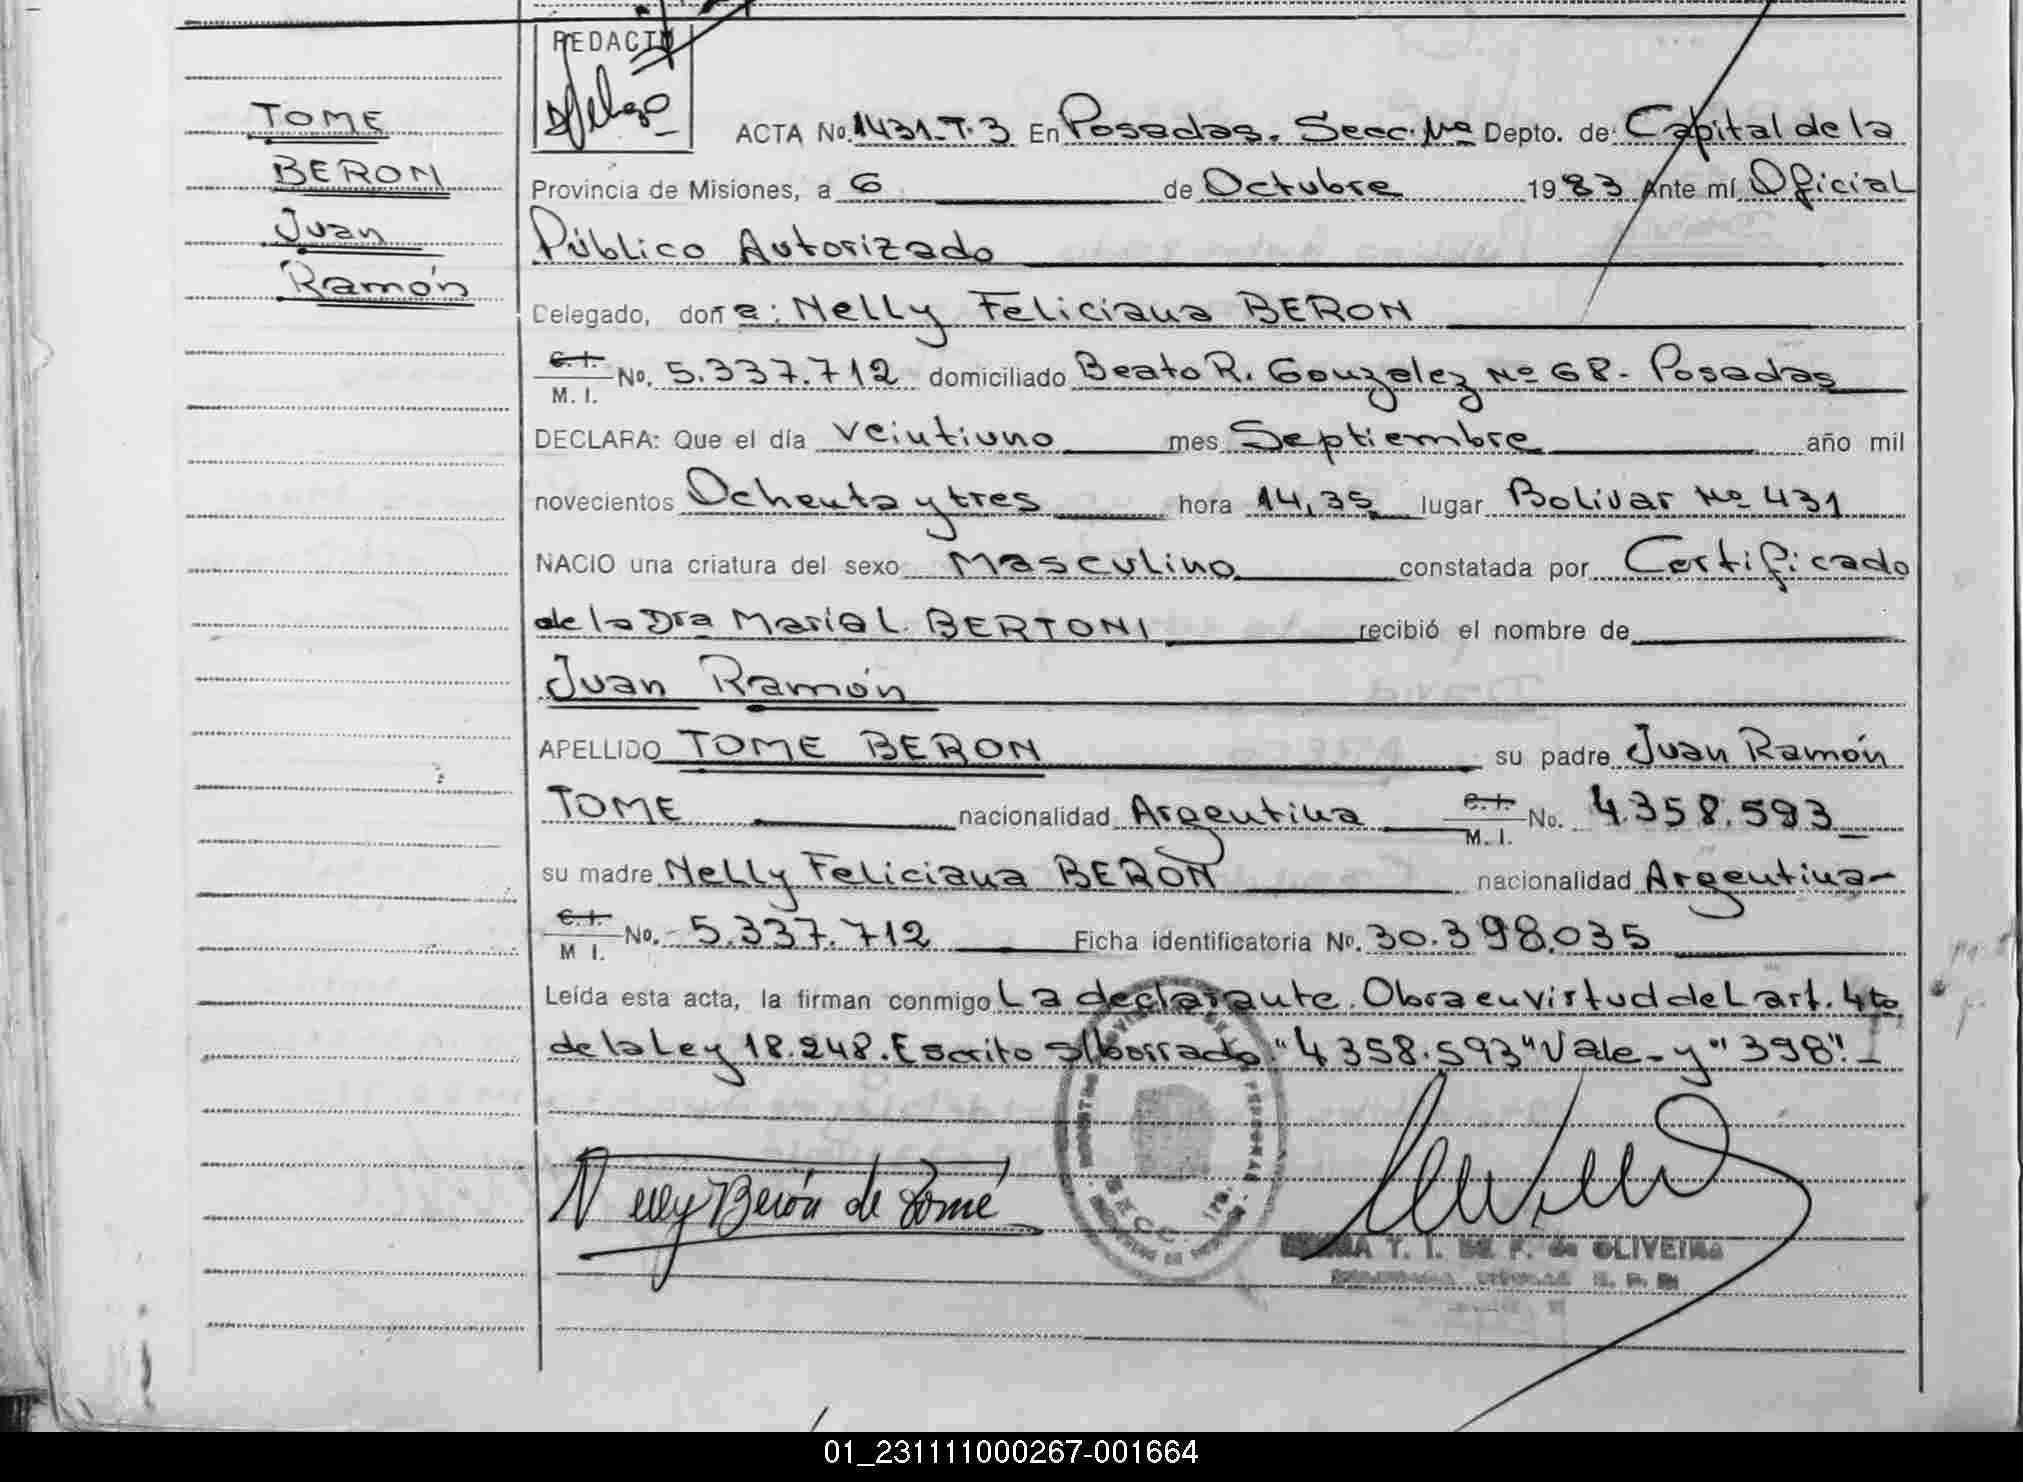 TOME
BERON
Juan
Ramón
REDACTO
ACTA No. 1431-T.3 En Posadas. Secc. 1ra Depto. de Capital de la
Provincia de Misiones, a 6 de Octubre 1983 Ante mí Oficial
Público Autorizado
Delegado, don a: Nelly Feliciana BERON
C.I. M.I. No. 5.337.712 domiciliado Beato R. Gonzalez Nº 68- Posadas
DECLARA: Que el día veintiuno mes Septiembre año mil
novecientos Ochenta y tres hora 14,35 lugar Bolivar Nº 431
NACIO una criatura del sexo Masculino constatada por Certificado
de la Dra María L. BERTONI recibió el nombre de
Juan Ramón
APELLIDO TOME BERON su padre Juan Ramón
TOME nacionalidad Argentina C.I. M.I. No. 4.358.593
su madre Nelly Feliciana BERON nacionalidad Argentina-
C.I. M I. No. 5.337.712 Ficha identificatoria No. 30.398.035
Leída esta acta, la firman conmigo La declarante. Obra en virtud del art. 4to
de la Ley 18.248. Escrito s/borrado "4358.593" Vale- y "398".-
Nelly Berón de Tomé
T. I. DE F. de OLIVEIRA
SECC. 1ra.
01_231111000267-001664